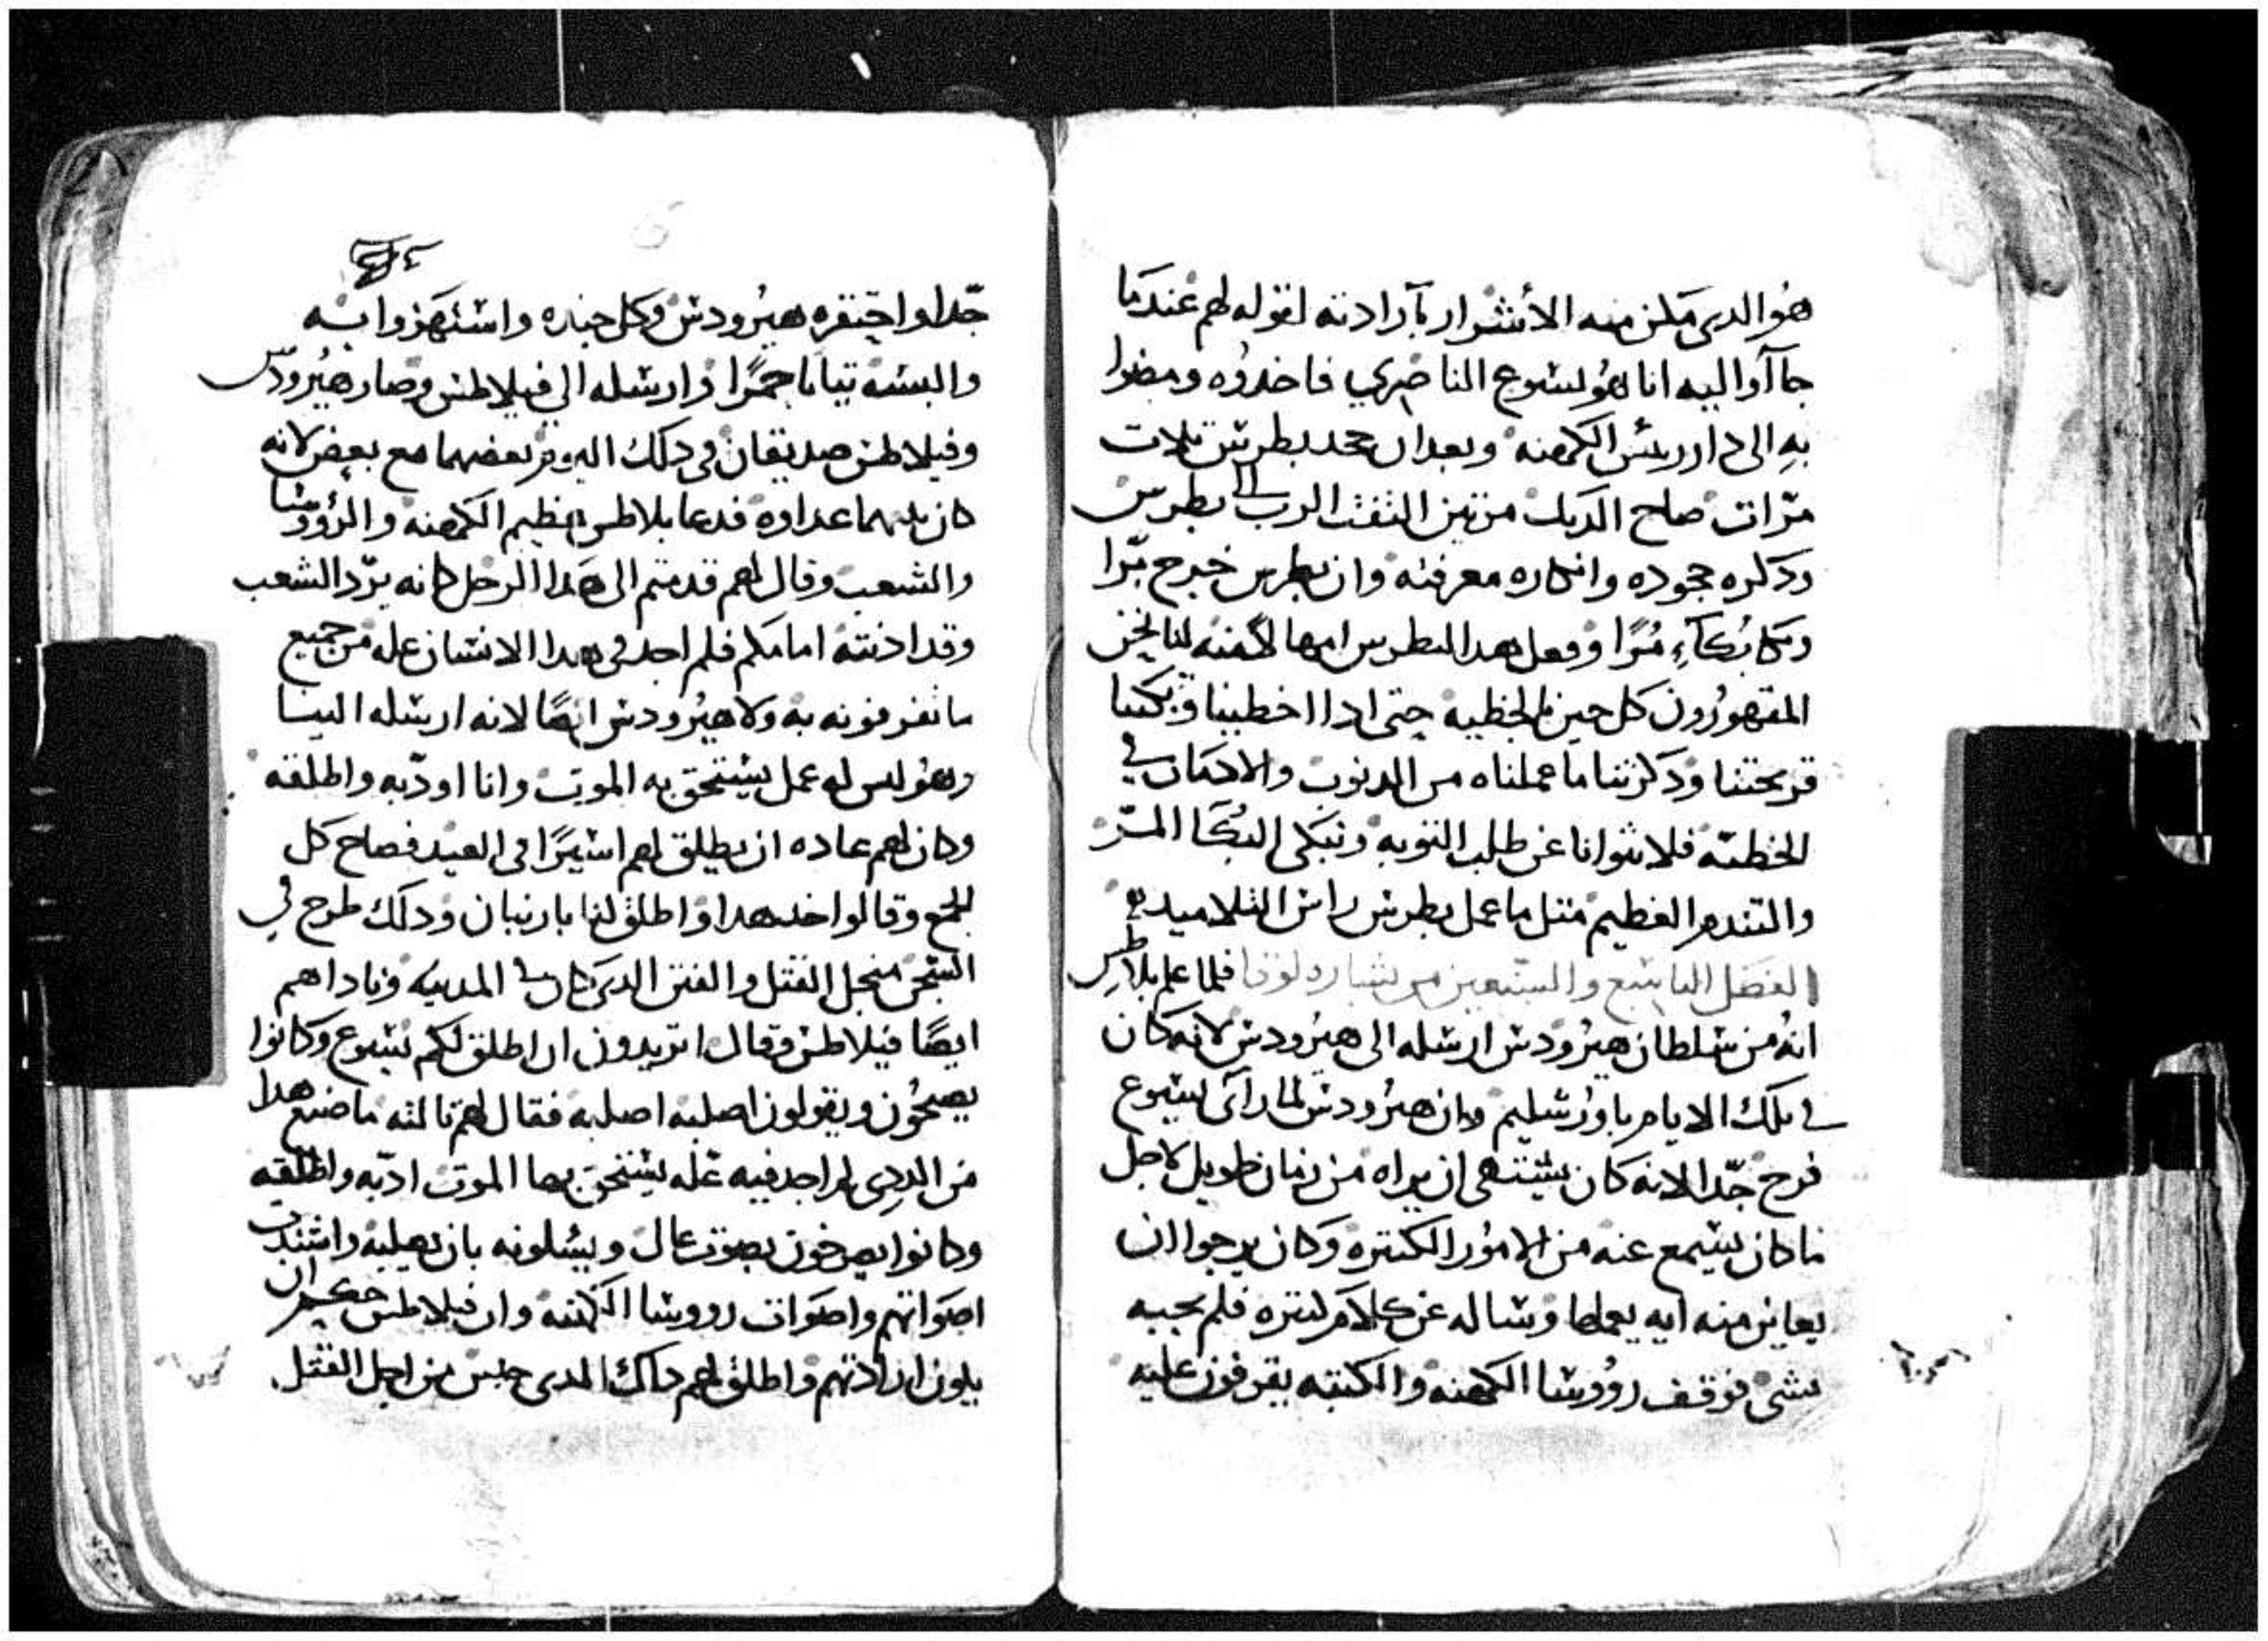 هو الدي مكن منه الأشرار بآرادته لقوله لهم عندما
جاآوا اليه انا هو يسوع الناصري فاخدوه ومضوا
به الى دار ريس الكهنه وبعد ان جحد بطرس تلات
مرّات صاح الديك مرتين التفت الرب الى بطرس
ودكره جحوده وانكاره معرفته وان بطرس خرج برّا
وبكا بُكآء مُرًا وفعل هدا لبطرس
المقهورون كل حين بالخطيه حتى ادا اخطينا وبكتنا
قريحتنا ودكرتنا ما عملناه من الدنوب والادمان في
الخطيّه فلا نتوانا عن طلب التوبه ونبكى البُكا المرّ
والتندم العظيم متل ما عمل بطرس راس التلاميد
الفصل التاسع والسبعين من بشاره لوقا فلما علم بلاطس
انهُ من سلطان هيرودس ارسله الى هيرودس لانه كان
في تلك الايام باورشليم وان هيرودس لما رآى يسوع
فرح جدّا لانه كان يشتهى ان يراه من زمان طويل لاجل
ما كان يسمع عنه من الامور الكتيره وكان يرجوا ان
يعاين منه ايه يعملها وساله عن كلام كتيره فلم يجبه
بشى فوقف رووسا الكهنه والكتبه يقرفون عليه
جدّا واحتقره هيرودس وكل جنده واستهزوا به
والبسه تيابًا حمرًا وارسله الى فيلاطس وصار هيرودس
وفيلاطس صديقان فى دلك اليوم بعضهما مع بعض لانه
كان بينهما عداوه فدعا بلاطس عظيم الكهنه والرؤوسا
والشعب وقال لهم قدمتم الى هدا الرجل كانه يردّ الشعب
وقد ادنته امامكم فلم اجد فى هدا الانسان عله من جميع
ما تقرفونه به ولا هيرودس ايضًا لانه ارسله الينا
وهو ليس له عمل يستحق به الموت وانا اودّبه واطلقه
وكان لهم عاده ان يطلق لهم اسيرًا فى العيد فصاح كل
الجمع وقالوا خد هدا واطلق لنا بارنبان ودلك طرح في
السجن منجل القتل والفتن الدى كان في المدينه وناداهم
ايضًا فيلاطس وقال اتريدون ان اطلق لكم يسوع وكانوا
يصيحُون ويقولون اصلبه اصلبه فقال لهم تالته ما صنع هدا
من الردى لم اجد فيه علّه يستحق بها الموت ادّبه واطلقه
وكانوا يصرخون بصوت عال ويسلونه بان يصلبه واشتدت
اصواتهم واصوات رووسا الكهنه وان فيلاطس حكم ان
يكون ارادتهم واطلق لهم داك الدى حبس من اجل القتل